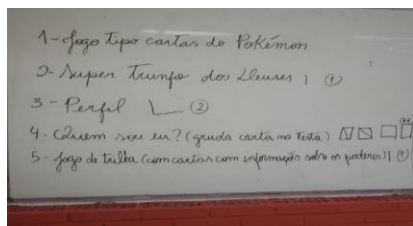 1- Jogo tipo cartas do Pokémon
2- Super trunfo dos Deuses | ①
3 - Perfil ②
4- Quem sou eu? (gruda carta na testa)
5- Jogo de trilha (com cartas com informação sobre os poderes) | ①